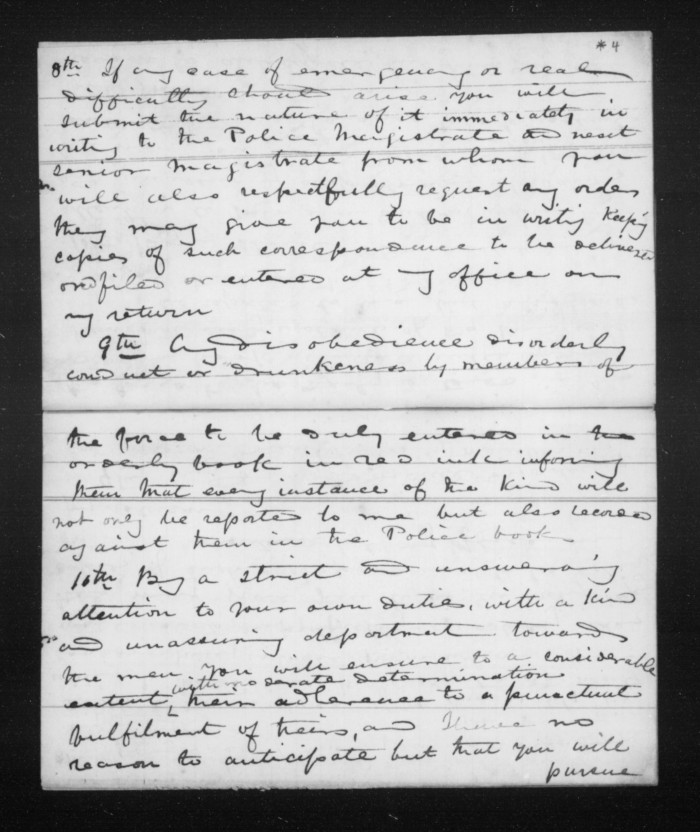 *4
8th If any case of emergency or real
difficulty should arise you will
submit the nature of it immediately in
writing to the Police Magistrate and next
senior magistrate from whom you
will also respectfully request any orders
they may give you to be in writing keeping
copies of such correspondence to be delivered
or filed or entered at my office on
my return
9th Any disobedience disorderly
conduct or drunkeness by members of
the force to be duly entered in the
orderly book in red ink informing
them that every instance of the kind will
not only be reported to me but also recorded
against them in the Police book
10th By a strict and unswerving
attention to your own duties, with a kind
and unassuming deportment towards
the men, you will ensure to a considerable
with moderate determination
extent, their adherance to a punctual
fulfilment of theirs, and I have no
reason to anticipate but that you will
pursue